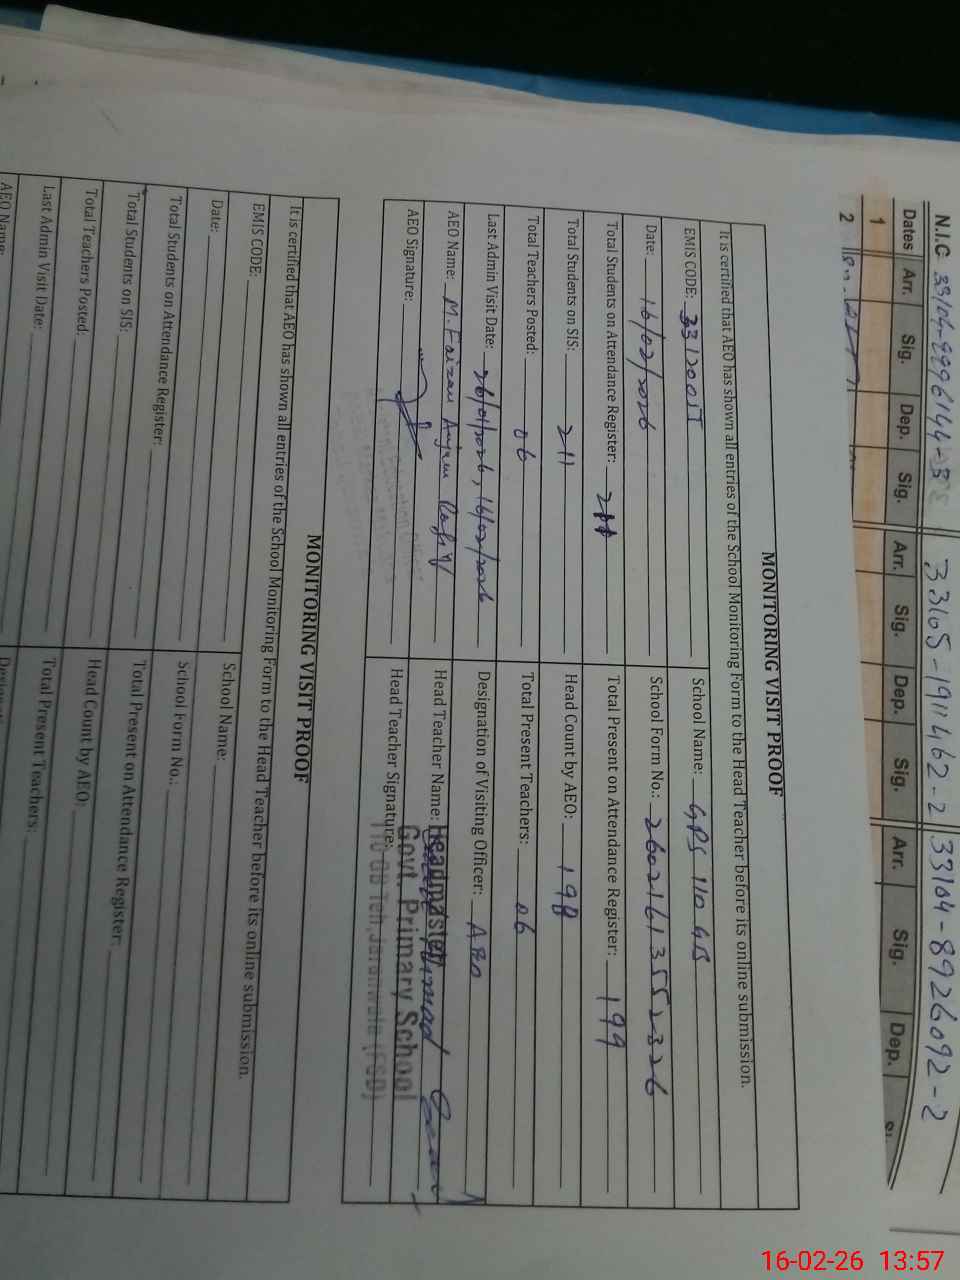 N.I.C 33104-9996144-3 33105-1911462-2 33104-8926092-2
Dates Arr. Sig. Dep. Sig. Arr. Sig. Dep. Sig. Arr. Sig. Dep.
1
2
MONITORING VISIT PROOF
It is certified that AEO has shown all entries of the School Monitoring Form to the Head Teacher before its online submission.
EMIS CODE: School Name: GPS 110 GB
Date: 16/02/2026 School Form No.: 260216135552326
Total Students on Attendance Register: 211 Total Present on Attendance Register: 199
Total Students on SIS: 211 Head Count by AEO: 198
Total Teachers Posted: 06 Total Present Teachers: 06
Last Admin Visit Date: 26/01/2026, 16/02/2026 Designation of Visiting Officer: AEO
AEO Name: M. Faizan Anjum Head Teacher Name:
AEO Signature: Head Teacher Signature:
Headmaster
Govt. Primary School
110 GB Teh, Jaranwala (FSD)
MONITORING VISIT PROOF
It is certified that AEO has shown all entries of the School Monitoring Form to the Head Teacher before its online submission.
EMIS CODE: School Name:
Date: School Form No.:
Total Students on Attendance Register: Total Present on Attendance Register:
Total Students on SIS: Head Count by AEO:
Total Teachers Posted: Total Present Teachers:
Last Admin Visit Date:
AEO Name:
16-02-26 13:57